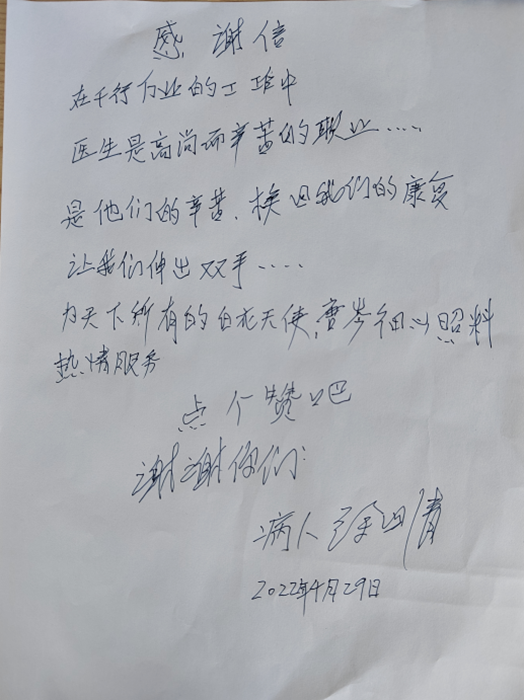 感谢信
在千行百业的工作中
医生是高尚而辛苦的职业.....
是他们的辛苦、换回我们的康复
让我们伸出双手.....
为天下所有的白衣天使,细心照料
热情服务
点个赞吧
谢谢你们:
病人
2022年4月29日